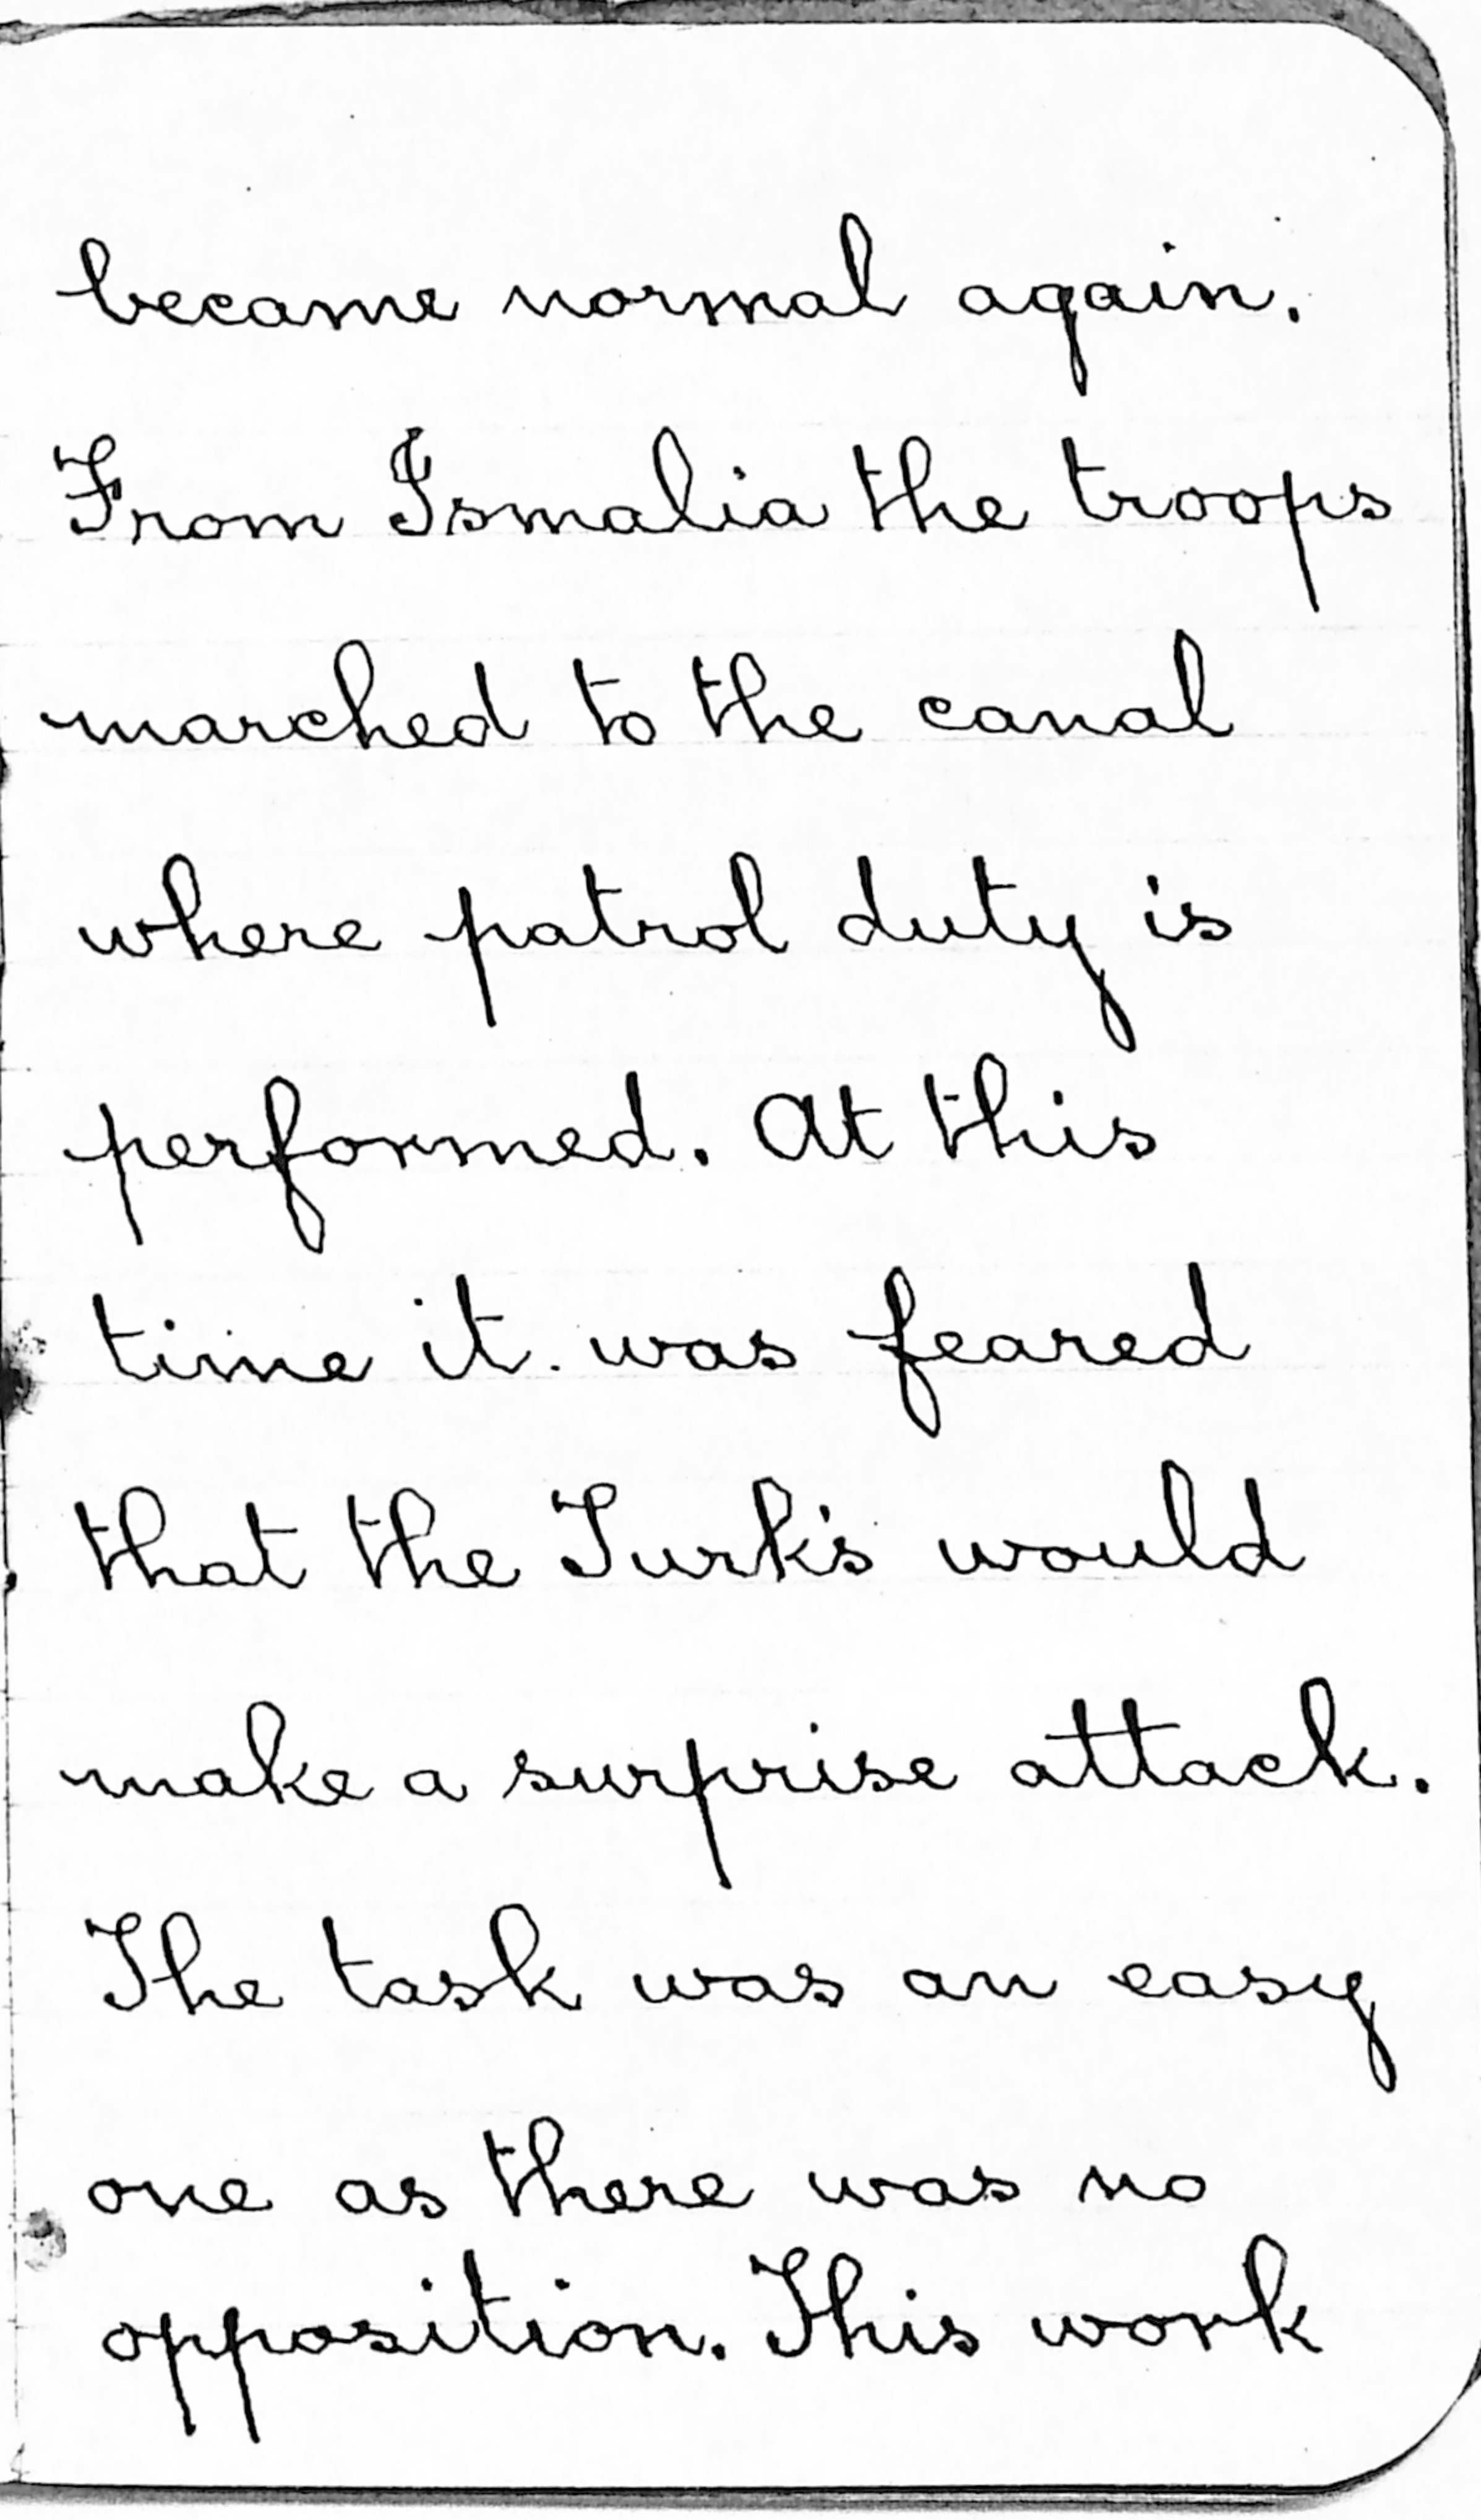 became normal again.
From Ismalia the troops
marched to the canal
where patrol duty is
performed. At this
time it was feared
that the Turk's would
make a surprise attack.
The task was an easy
one as there was no
opposition. This work